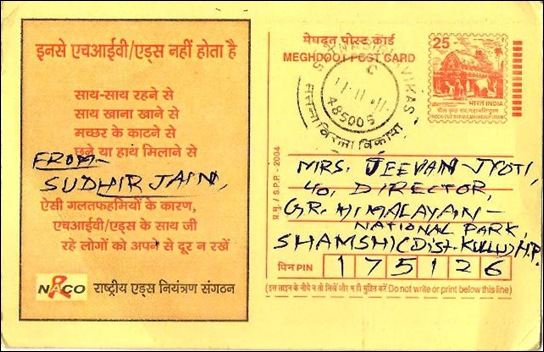 इनसे एचआईवी/एड्स नहीं होता है
साथ-साथ रहने से
साथ खाना खाने से
मच्छर के काटने से
छूने या हाथ मिलाने से
FROM-
SUDHIR JAIN,
ऐसी गलतफहमियों के कारण,
एचआईवी/एड्स के साथ जी
रहे लोगों को अपने से दूर न रखें
NACO राष्ट्रीय एड्स नियंत्रण संगठन
मेघदूत पोस्ट कार्ड
MEGHDOOT POST CARD
25
भारत INDIA
VIKAS
485005
S.P.R.-2004
MRS. JEEVAN JYOTI,
C/O, DIRECTOR,
GR. HIMALAYAN-
NATIONAL PARK,
SHAMSHI (Dist. KULLU) H.P.
पिन PIN 175126
(इस लाइन के नीचे न तो लिखें और न ही मुद्रित करें Do not write or print below this line)